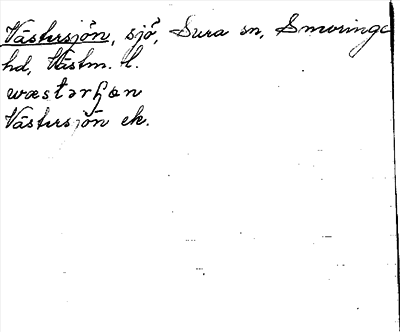 Västersjön, sjö, Sura sn, Snevringe
hd, Västm. l.
wæstərhɷn
Västersjön ek.